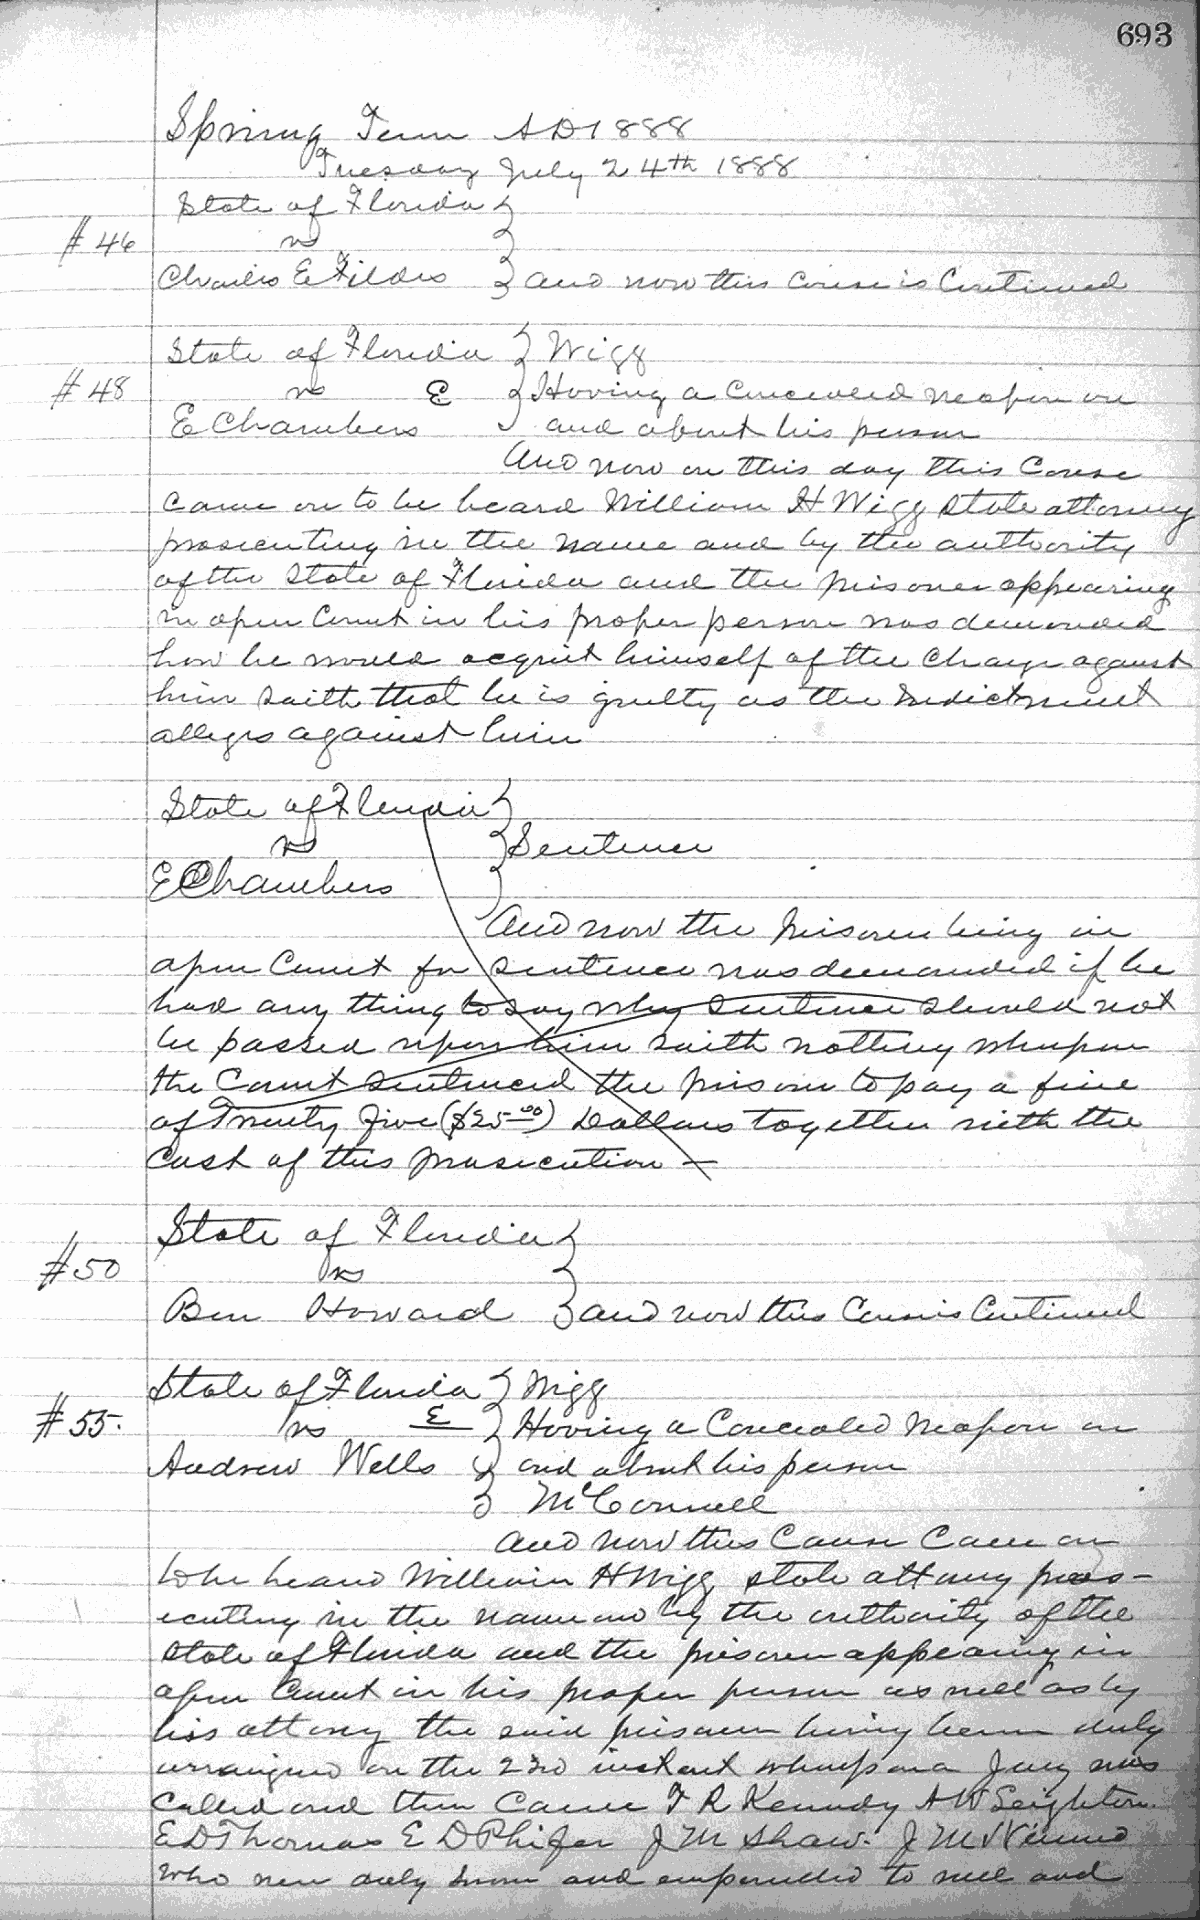 693
Spring Term AD 1888
Tuesday July 24th 1888
State of Florida
#46 vs
Charles E Fildes } and now this Cause is Continued
State of Florida } Wigg
#48 vs E } Having a Concealed Weapon on
E Chambers } and about his person
And now on this day this Cause
came on to be heard William H Wigg State attorney
prosecuting in the name and by the authority
of the State of Florida and the prisoner appearing
in open Court in his proper person was demanded
how he would acquit himself of the Charge against
him saith that he is guilty as the Indictment
alleges against him
State of Florida }
vs } Sentence
E Chambers }
And now the prisoner being in
open Court for sentence was demanded if he
had any thing to say why sentence should not
be passed upon him saith nothing whupon
the Court sentenced the prisoner to pay a fine
of Twenty five ($25 00) Dollars together with the
Cost of this prosecution —
State of Florida }
#50 vs
Ben Howard } and now this Cause is Continued
State of Florida } Wigg
#55. vs E } Having a Concealed Weapon on
Andrew Wells } and about his person
} McConnell
and now this Cause Came on
to be heard William H Wigg state attorney pros-
ecuting in the name and by the authority of the
State of Florida and the prisoner appearing in
open Court in his proper person as well as by
his attorney the said prisoner having been duly
arraigned on the 23rd instant whupon a Jury was
Called and then Came F R Kennedy A W Leighton
E D Thomas E D Phifer J M Shaw. J M
who were duly sworn and empanelled to well and